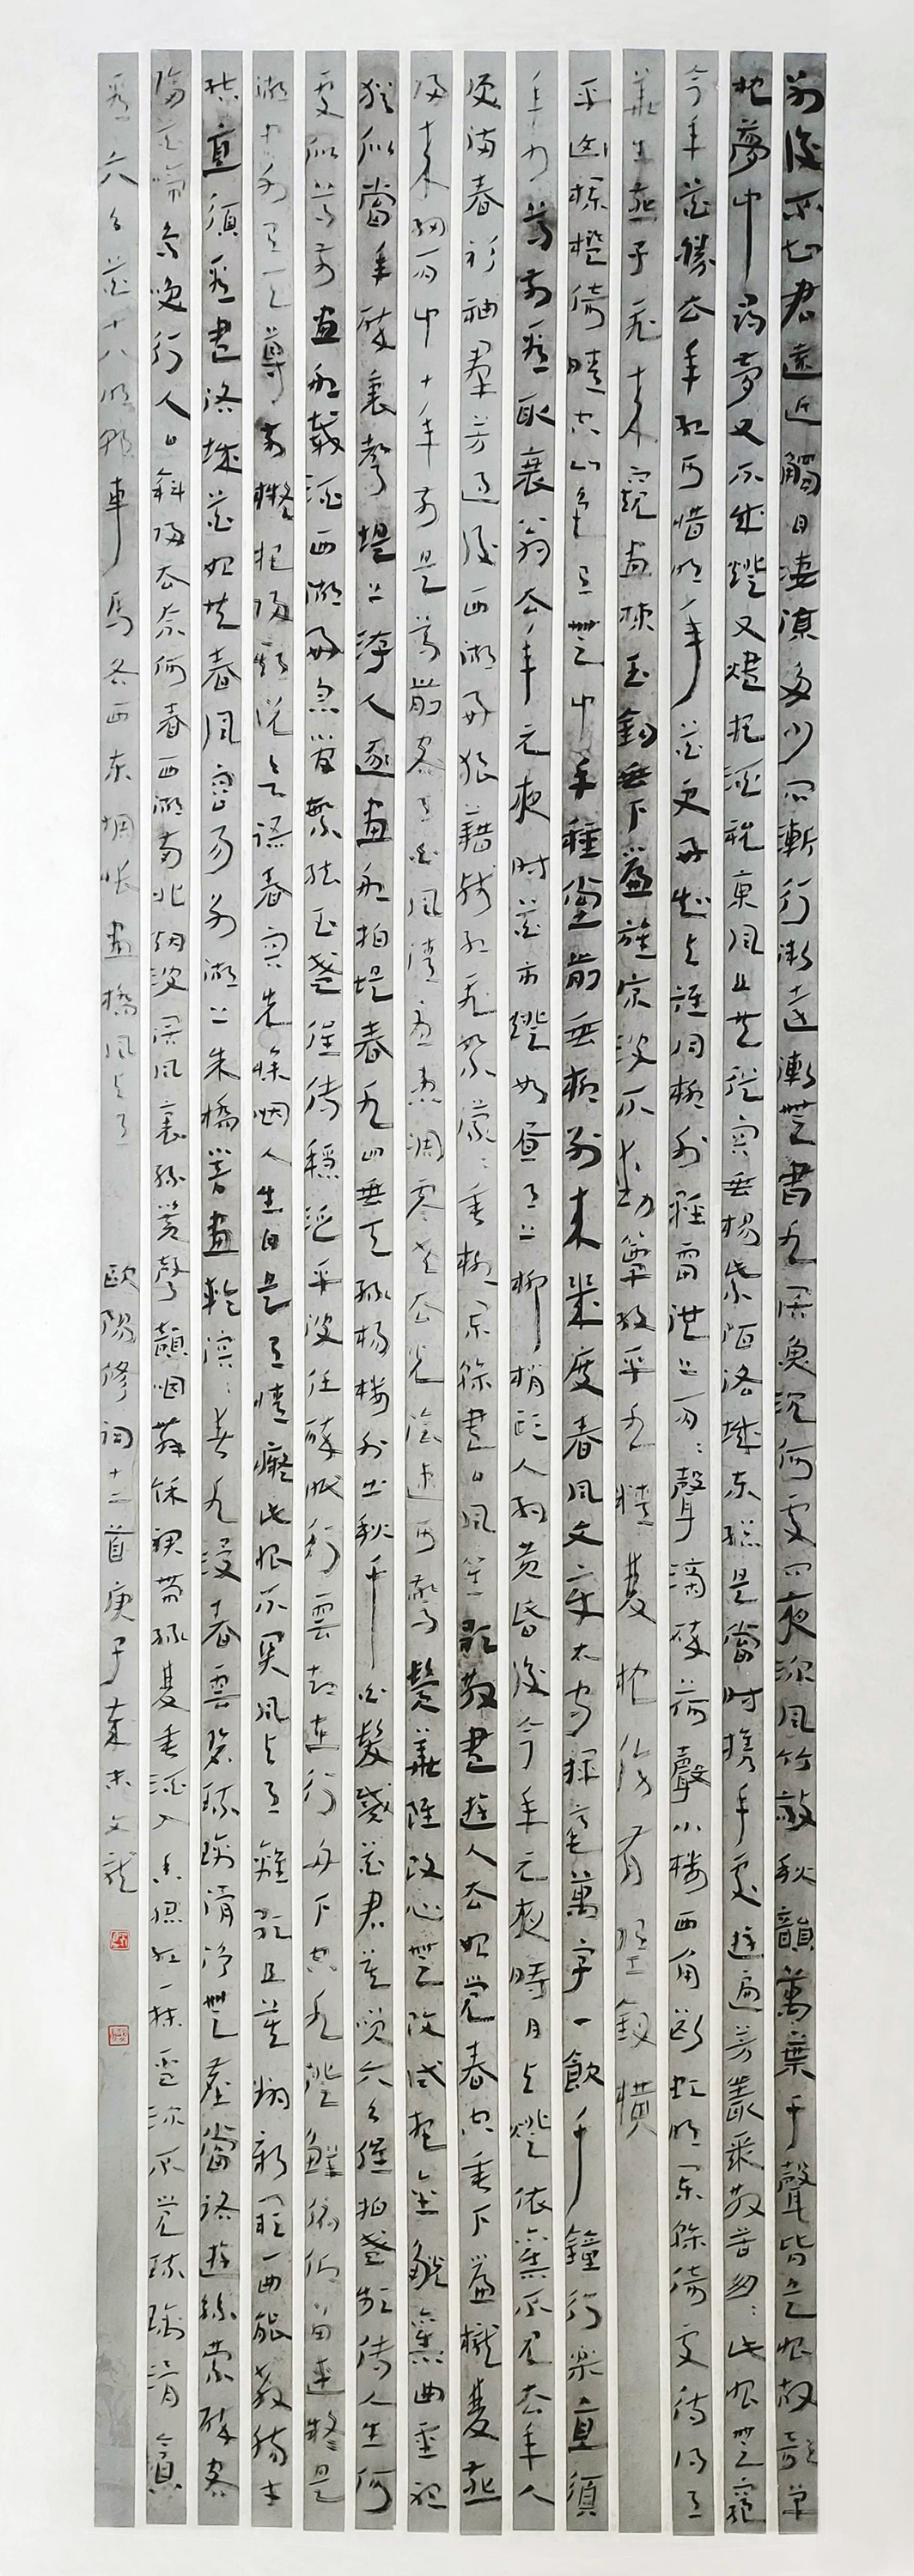 別後不知君遠近觸目凄涼多少悶漸行漸遠漸無書水闊魚沉何處問夜深風竹敲秋韻萬葉千聲皆是恨故敧單
枕夢中尋夢又不成燈又燼把酒祝東風且共從容垂楊紫陌洛城東總是當時攜手處遊遍芳叢聚散苦匆匆此恨無窮
今年花勝去年紅可惜明年花更好知與誰同柳外輕雷池上雨雨聲滴碎荷聲小樓西角斷虹明闌干倚處待得月
華生燕子飛來窺畫棟玉鉤垂下簾旌涼波不動簟紋平水精雙枕傍有墮釵橫
平山欄檻倚晴空山色有無中手種堂前垂柳別來幾度春風文章太守揮毫萬字一飲千鐘行樂直須
年少尊前看取衰翁去年元夜時花市燈如晝月上柳梢頭人約黃昏後今年元夜時月與燈依舊不見去年人
淚滿春衫袖群芳過後西湖好狼藉殘紅飛絮濛濛垂柳闌干盡日風笙歌散盡遊人去始覺春空垂下簾櫳雙燕
歸來細雨中十年前是尊前客月白風清憂患凋零老去光陰速可驚鬢華雖改心無改試把金觥舊曲重聽
猶似當年醉裏聲堤上遊人逐畫船拍堤春水四垂天綠楊樓外出秋千白髮戴花君莫笑六幺催拍盞頻傳人生何
處似尊前畫船載酒西湖好急管繁弦玉盞催傳穩泛平波任醉眠行雲却在行舟下空水澄鮮俯仰留連疑是
湖中別有天尊前擬把歸期說欲語春容先慘咽人生自是有情癡此恨不關風與月離歌且莫翻新闋一曲能教腸寸
結直須看盡洛城花始共春風容易別湖上朱橋響畫輪溶溶春水浸春雲碧琉璃滑淨無塵當路遊絲縈醉客
隔花啼鳥喚行人日斜歸去奈何春西湖南北烟波闊風裏絲簧聲韻咽舞餘裙帶綠雙垂酒入香腮紅一抹盃深不覺琉璃滑貪
看六幺花十八明朝車馬各西東惆悵畫橋風與月 歐陽修詞十二首庚子歲末文龍